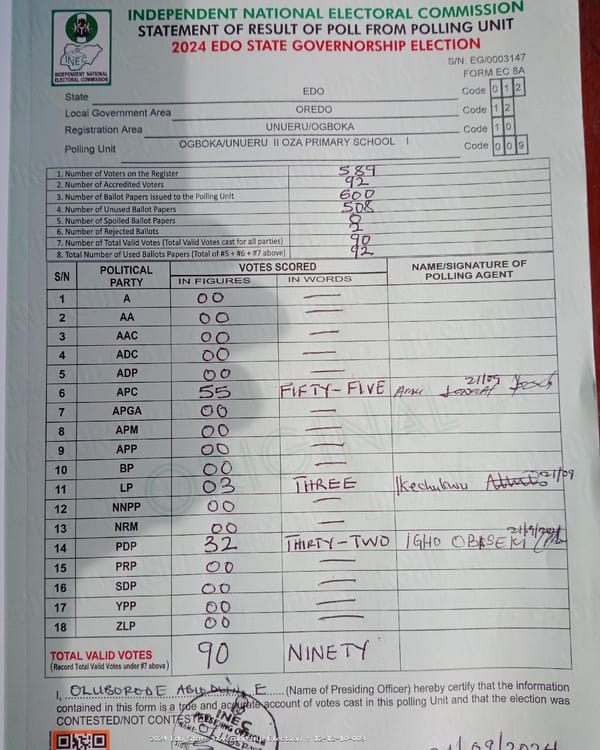 INDEPENDENT NATIONAL ELECTORAL COMMISSION
STATEMENT OF RESULT OF POLL FROM POLLING UNIT
2024 EDO STATE GOVERNORSHIP ELECTION
INEC
INDEPENDENT NATIONAL
ELECTORAL COMMISSION
S/N: EG/0003147
FORM EC 8A
State EDO Code 0 1 2
Local Government Area OREDO Code 1 2
Registration Area UNUERU/OGBOKA Code 1 0
Polling Unit OGBOKA/UNUERU II OZA PRIMARY SCHOOL I Code 0 0 9
1. Number of Voters on the Register 589
2. Number of Accredited Voters 92
3. Number of Ballot Papers issued to the Polling Unit 600
4. Number of Unused Ballot Papers 508
5. Number of Spoiled Ballot Papers 0
6. Number of Rejected Ballots 2
7. Number of Total Valid Votes (Total Valid Votes cast for all parties) 90
8. Total Number of Used Ballots Papers (Total of #5 + #6 + #7 above) 92
S/N POLITICAL PARTY VOTES SCORED NAME/SIGNATURE OF POLLING AGENT
IN FIGURES IN WORDS
1 A 00 —
2 AA 00 —
3 AAC 00 —
4 ADC 00 —
5 ADP 00 —
6 APC 55 FIFTY-FIVE 21/09
7 APGA 00 —
8 APM 00 —
9 APP 00 —
10 BP 00 —
11 LP 03 THREE Ikechukwu 21/09
12 NNPP 00 —
13 NRM 00 —
14 PDP 32 THIRTY-TWO IGHO OBASEKI
15 PRP 00 —
16 SDP 00 —
17 YPP 00 —
18 ZLP 00 —
TOTAL VALID VOTES 90 NINETY
(Record Total Valid Votes under #7 above)
ORIGINAL
I, OLUBORODE E. (Name of Presiding Officer) hereby certify that the information
contained in this form is a true and accurate account of votes cast in this polling Unit and that the election was
CONTESTED/NOT CONTESTED
INEC
PRESIDING OFFICER